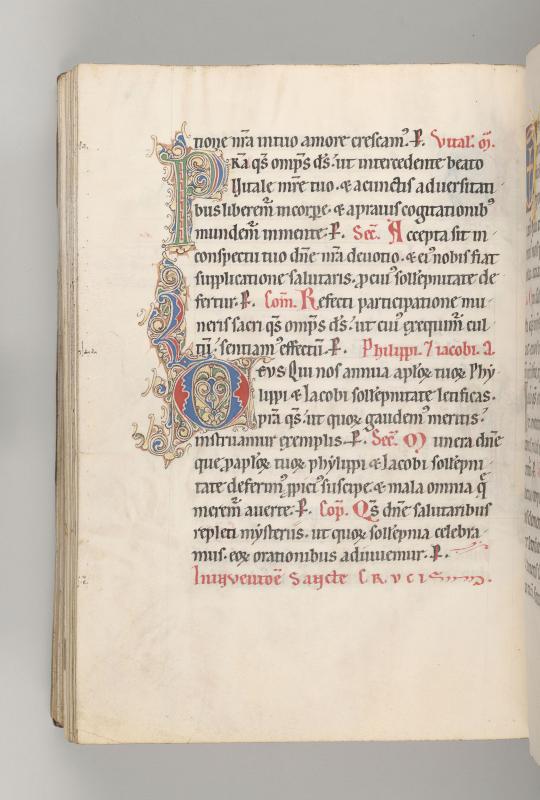 tione nr̄a in tuo amore crescam᷑. P. Vital. m̄.
PRA qs om̄ps ds̄. ut intercedente beato
Uitale mr̄e tuo. & a cunctis aduersitati
bus liberem᷑ in corpore. & a prauis cogitationib᷑
mundem᷑ in mente. P. Sec̄. Accepta sit in
conspectu tuo dn̄e nr̄a deuotio. & ei nobis fiat
supplicatione salutaris. p cui᷑ sollēpnitate de
fertur. P. Com̄. Refecti participatione mu
neris sacri qs om̄ps ds̄. ut cui᷑ exequim᷑ cul
tū. sentiam᷑ effectū. P. Philippi. 7 iacobi. a
DEVS Qui nos annua aplōꝝ tuoꝝ Phy
lippi & Iacobi sollēpnitate letificas.
p̄ta qs. ut quoꝝ gaudem᷑ meritis.
instruamur exemplis. P. Sec̄. Munera dn̄e
que p aplōꝝ tuoꝝ phylippi & Iacobi sollēpni
tate deferim᷑ ppici᷑ suscipe. & mala omnia q̄
merem᷑ auerte. P. Cop̄. Qs dn̄e salutaribus
repleti mysteriis. ut quoꝝ sollēpnia celebra
mus. eoꝝ orationibus adiuuemur. P.
In inventiōe Sancte CRVCIS